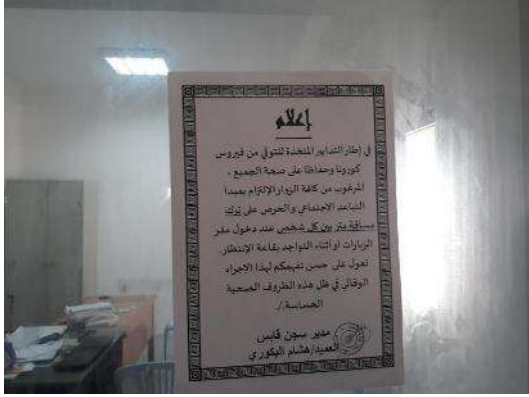 إعلام
في إطار التدابير المتخذة للتوقي من فيروس
كورونا وحفاظا على صحة الجميع ،
المرغوب من كافة الزوار الإلتزام بمبدأ
التباعد الاجتماعي والحرص على ترك
مسافة متر بين كل شخص عند دخول مقر
الزيارات او أثناء التواجد بقاعة الإنتظار.
نعول على حسن تفهمكم لهذا الاجراء
الوقائي في ظل هذه الظروف الصحية
الحساسة./.
مدير سجن قابس
العميد/هشام البكوري